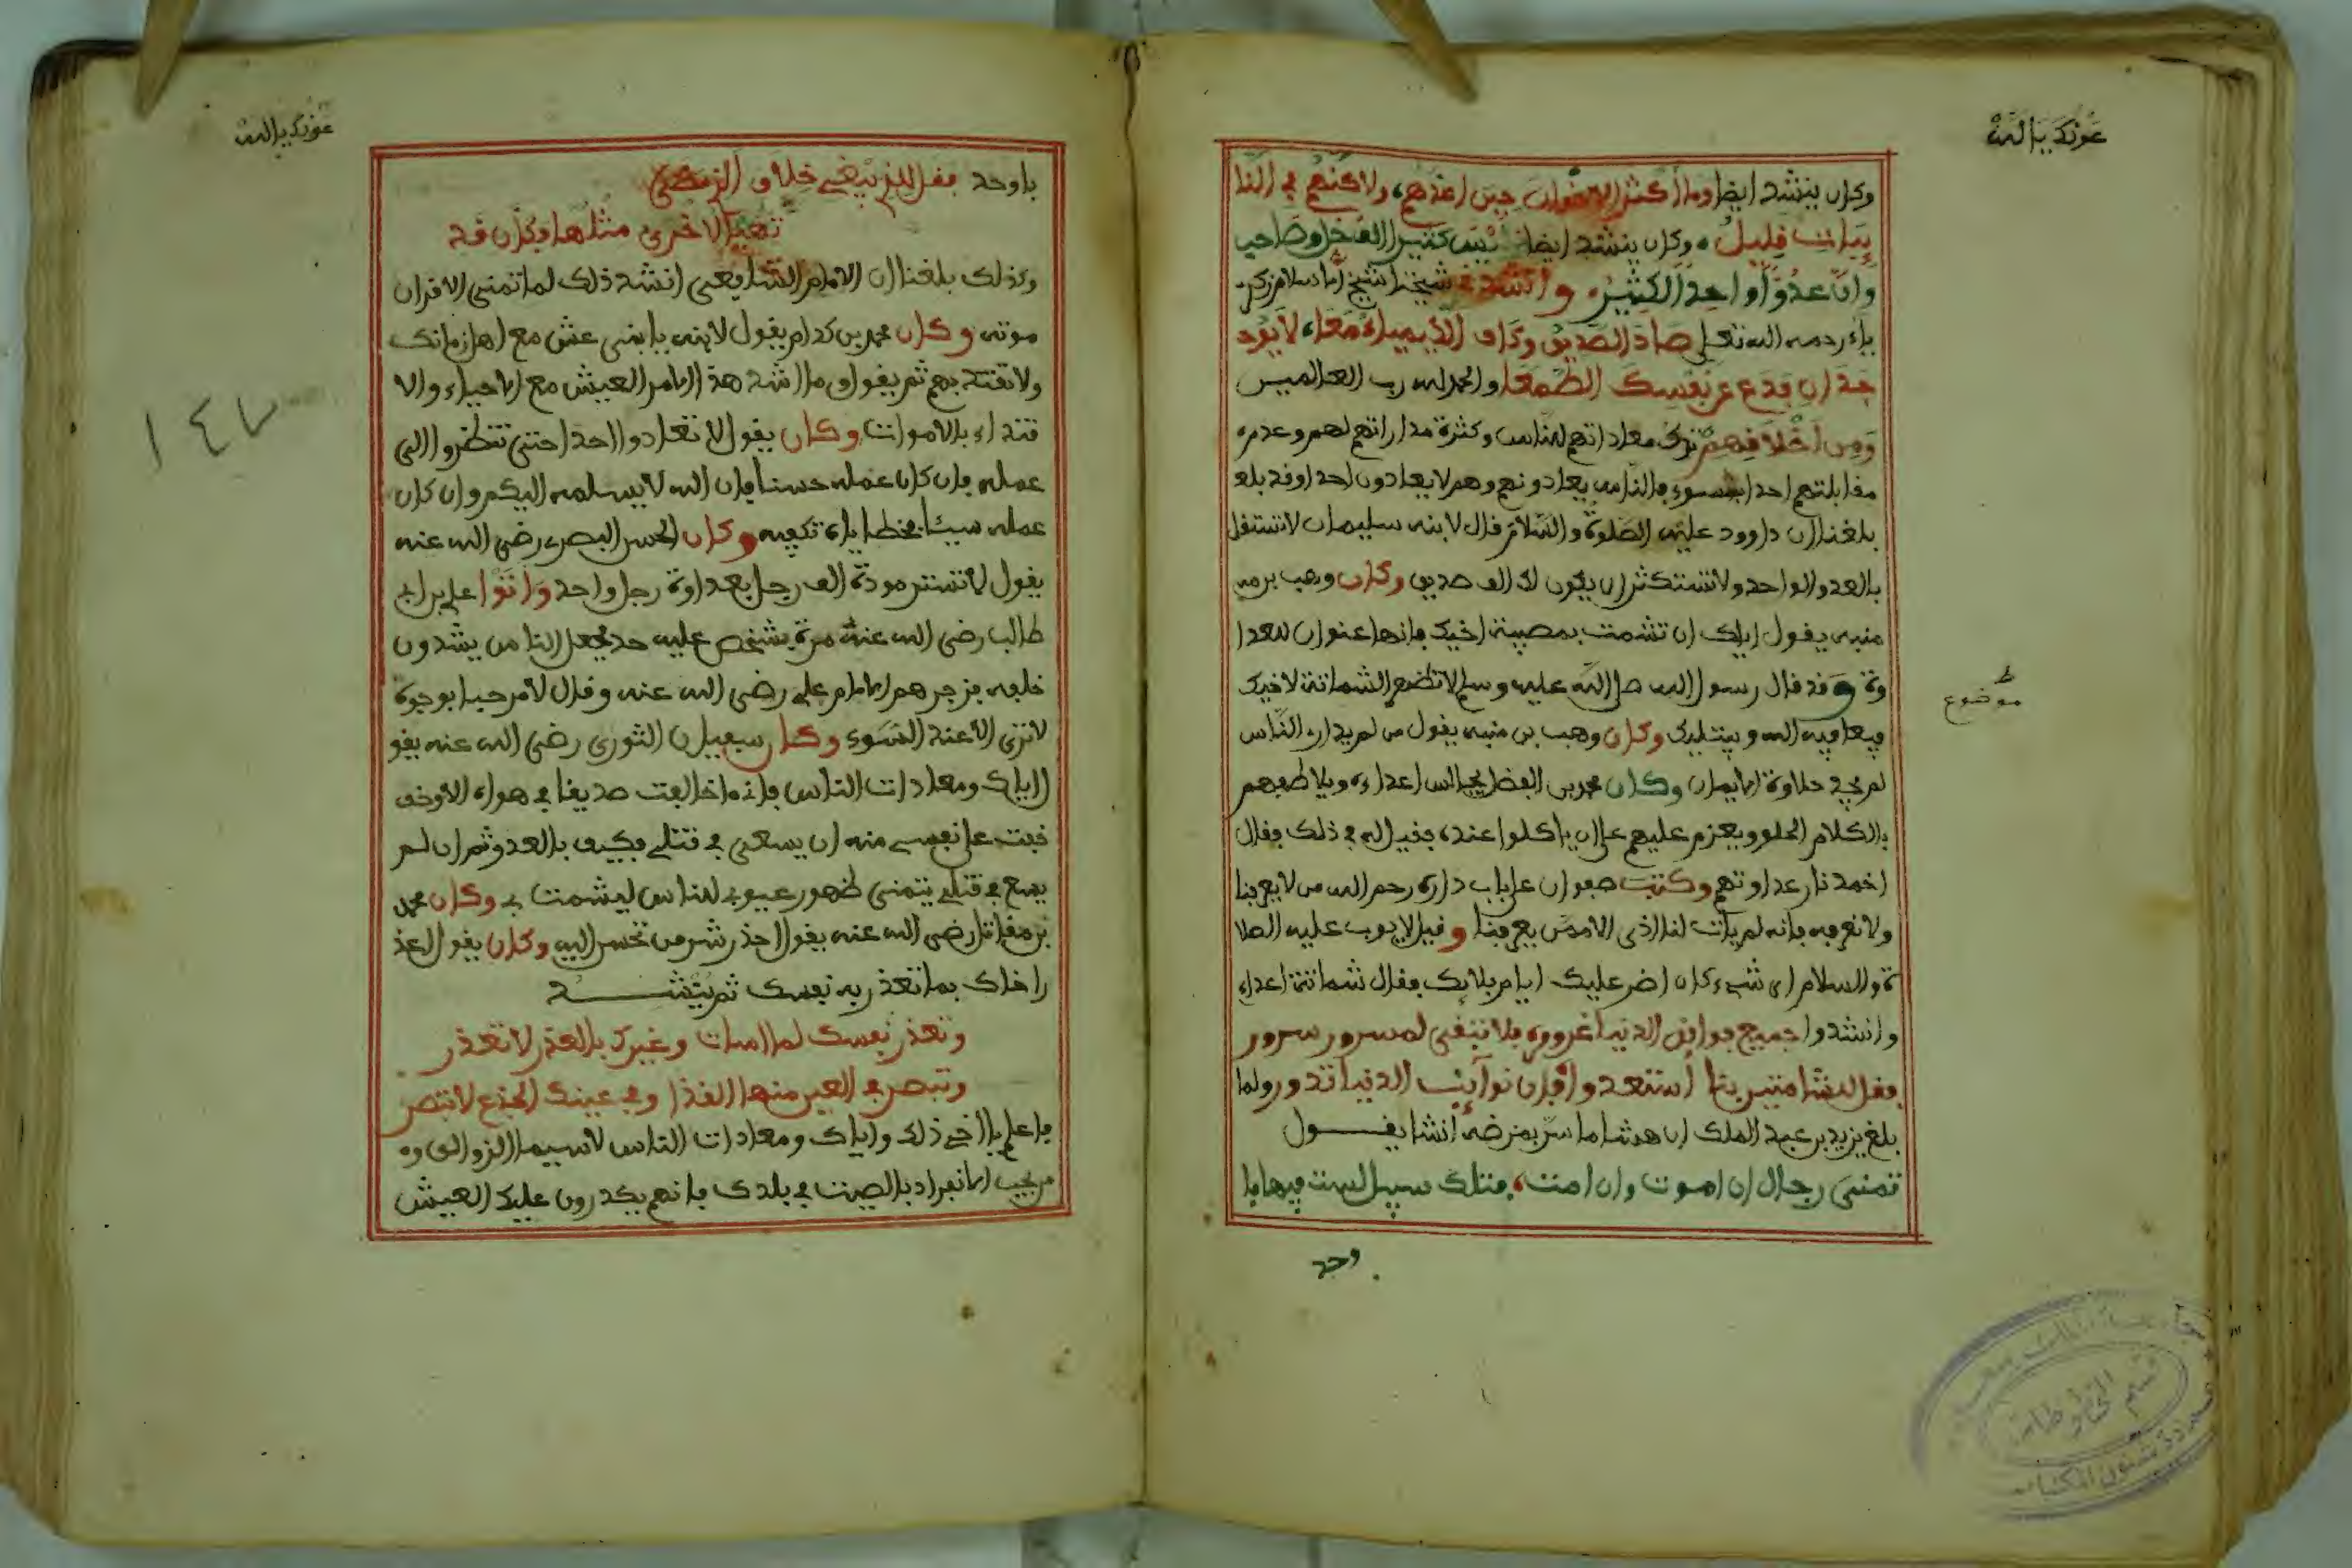 عونك يا الله
وكان ينشد ايضا وما أكثر الاخوان حين اعدهم، ولاكنهم في النا
يبات قليل، وكان ينشد ايضا ليس كثيرا الف خل وصاحب
وان عدوا واحد الكثير، وانشدني شيخنا شيخ الاسلام زكر
ياء رحمه الله تعلى صاد الصديق وكاف الكيمياء معا، لا يوجد
جدان فدع عن نفسك الطمعا والحمد لله رب العالمين
ومن اخلاقهم ترك معاداتهم للناس وكثرة مداراتهم لهم وعدم
مقابلتهم احدا بسوء فالناس يعادونهم وهم لا يعادون احدا وقد بلغ
بلغنا ان داوود عليه الصلوة والسلام قال لابنه سليمان لا تستقل
بالعدو الواحد ولا تستكثر ان يكون لك الف صديق وكان وهب بن مه
منبه يقول اياك ان تشمت بمصيبة اخيك فانها عنوان للعدا
وة وقد قال رسول الله صلى الله عليه وسلم لا تظهر الشماتة لاخيك
فيعافيه الله ويبتليك وكان وهب بن منبه يقول من لم يدار الناس
موضوع
لم يجد حلاوة الايمان وكان محمد بن الفضل يجالس اعداءه ويلاطفهم
بالكلام الحلو ويعزم عليهم على ان ياكلوا عنده فقيل له في ذلك فقال
اخمد نار عداوتهم وكتب صفوان على باب داره رحم الله من لا يعرفنا
ولا نعرفه فانه لم يات لنا الذى الا ممن يعرفنا وقيل لايوب عليه الصلا
ة والسلام اى شىء كان اضر عليك ايام بلائك فقال شماتة اعداء
وانشدوا جميع فوائد الدنيا غرور، فلا تبقى لمسرور سرور
فقل للشامتين بنا استعدوا فان نوائب الدنيا تدور ولما
بلغ يزيد بن عبد الملك ان هشاما سر بمرضه انشا يقـــول
تمنى رجال ان اموت وان امت، فتلك سبيل لست فيها با
وحد
عونك يا الله
باوحد فقل للذي يبغي خلاف الذي مضى
تهيا لاخرى مثلها وكان قد
وكذلك بلغنا ان الامام الشافعى انشد ذلك لما تمنى الاقران
موته وكان محمد بن كدام يقول لابنه يا بني عش مع اهل زمانك
ولا تقتد بهم ثم يقول ما اشد هذا الامر العيش مع الاحياء والا
١٤٧
قتداء بالاموات وكان يقول لا تعادوا احدا حتى تنظروا الى
عمله فان كان عمله حسنا فان الله لا يسلمه اليكم وان كان
عمله سيئا فخطاياه تكفيه وكان الحسن البصرى رضى الله عنه
يقول لا تشتر مودة الف رجل بعداوة رجل واحد واتوا علي بن ابي
طالب رضى الله عنه مرة بشخص عليه حد فجعل الناس يشدون
خلفه فزجرهم الامام علي رضى الله عنه وقال لا مرحبا بوجوه
لا ترى الا عند السوء وكان سفيان الثوري رضى الله عنه يقو
ل اياك ومعادات الناس فانه ما خالفت صديقا في هواه الا وخف
خفت على نفسى منه ان يسعى في قتلي فكيف بالعدو ثم ان لم
يسع في قتلي يتمنى ظهور عيوبي للناس ليشمت بي وكان محمد
بن مقاتل رضى الله عنه يقول احذر شر من تحسن اليه وكان يقول اعذ
ر اخاك بما تعذر به نفسك ثم ينشـــــد
وتعذر نفسك لما اسات وغيرك بالعذر لا تعذر
وتبصر في العين منها القذا وفي عينك الجذع لا تبصر
فاعلم يا اخي ذلك واياك ومعادات الناس لا سيما
من يحب الانفراد بالصيت في بلدك فانهم يكدرون عليك العيش
قسم المخطوطات
عمادة شئون المكتبات